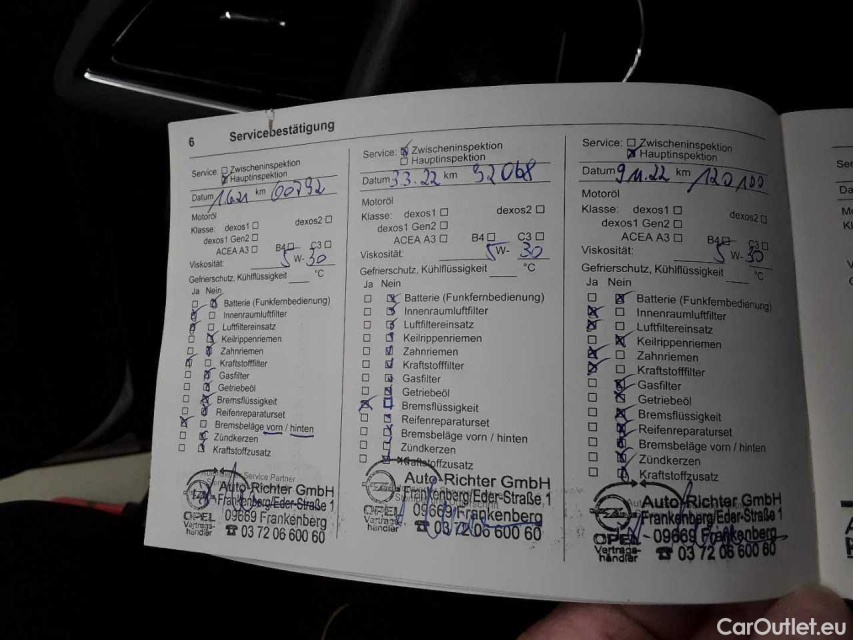 6 Servicebestätigung
Service: Zwischeninspektion
Hauptinspektion
Datum km
Motoröl
Klasse: dexos1 dexos2
dexos1 Gen2
ACEA A3 B4 C3
Viskosität: 5 W- 30
Gefrierschutz, Kühlflüssigkeit °C
Ja Nein
Batterie (Funkfernbedienung)
Innenraumluftfilter
Luftfiltereinsatz
Keilrippenriemen
Zahnriemen
Kraftstofffilter
Gasfilter
Getriebeöl
Bremsflüssigkeit
Reifenreparaturset
Bremsbeläge vorn / hinten
Zündkerzen
Kraftstoffzusatz
Service Partner
Auto-Richter GmbH
Frankenberg/Eder-Straße 1
09669 Frankenberg
OPEL
Vertrags-
händler
☎ 03 72 06 600 60
Service: Zwischeninspektion
Hauptinspektion
Datum 3.3.22 km 92068
Motoröl
Klasse: dexos1 dexos2
dexos1 Gen2
ACEA A3 B4 C3
Viskosität: 5 W- 30
Gefrierschutz, Kühlflüssigkeit °C
Ja Nein
Batterie (Funkfernbedienung)
Innenraumluftfilter
Luftfiltereinsatz
Keilrippenriemen
Zahnriemen
Kraftstofffilter
Gasfilter
Getriebeöl
Bremsflüssigkeit
Reifenreparaturset
Bremsbeläge vorn / hinten
Zündkerzen
Kraftstoffzusatz
Auto Richter GmbH
Frankenberg/Eder-Straße 1
09669 Frankenberg
OPEL
Vertrags-
händler
☎ 03 72 06 600 60
Service: Zwischeninspektion
Hauptinspektion
Datum 9.11.22 km 120100
Motoröl
Klasse: dexos1 dexos2
dexos1 Gen2
ACEA A3 B4 C3
Viskosität: 5 W- 30
Gefrierschutz, Kühlflüssigkeit °C
Ja Nein
Batterie (Funkfernbedienung)
Innenraumluftfilter
Luftfiltereinsatz
Keilrippenriemen
Zahnriemen
Kraftstofffilter
Gasfilter
Getriebeöl
Bremsflüssigkeit
Reifenreparaturset
Bremsbeläge vorn / hinten
Zündkerzen
Kraftstoffzusatz
Auto Richter GmbH
Frankenberg/Eder-Straße 1
09669 Frankenberg
OPEL
Vertrags-
händler
☎ 03 72 06 600 60
CarOutlet.eu